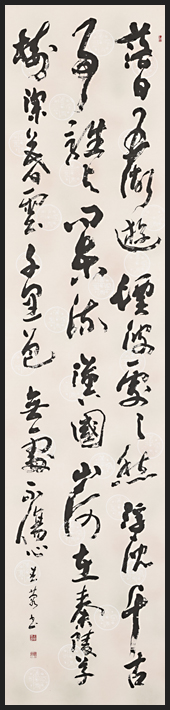 落日五湖遊煙波處々愁浮沈千古
事誰与問東流漢國山河在秦陵草
樹深暮雲千里色無處不傷心